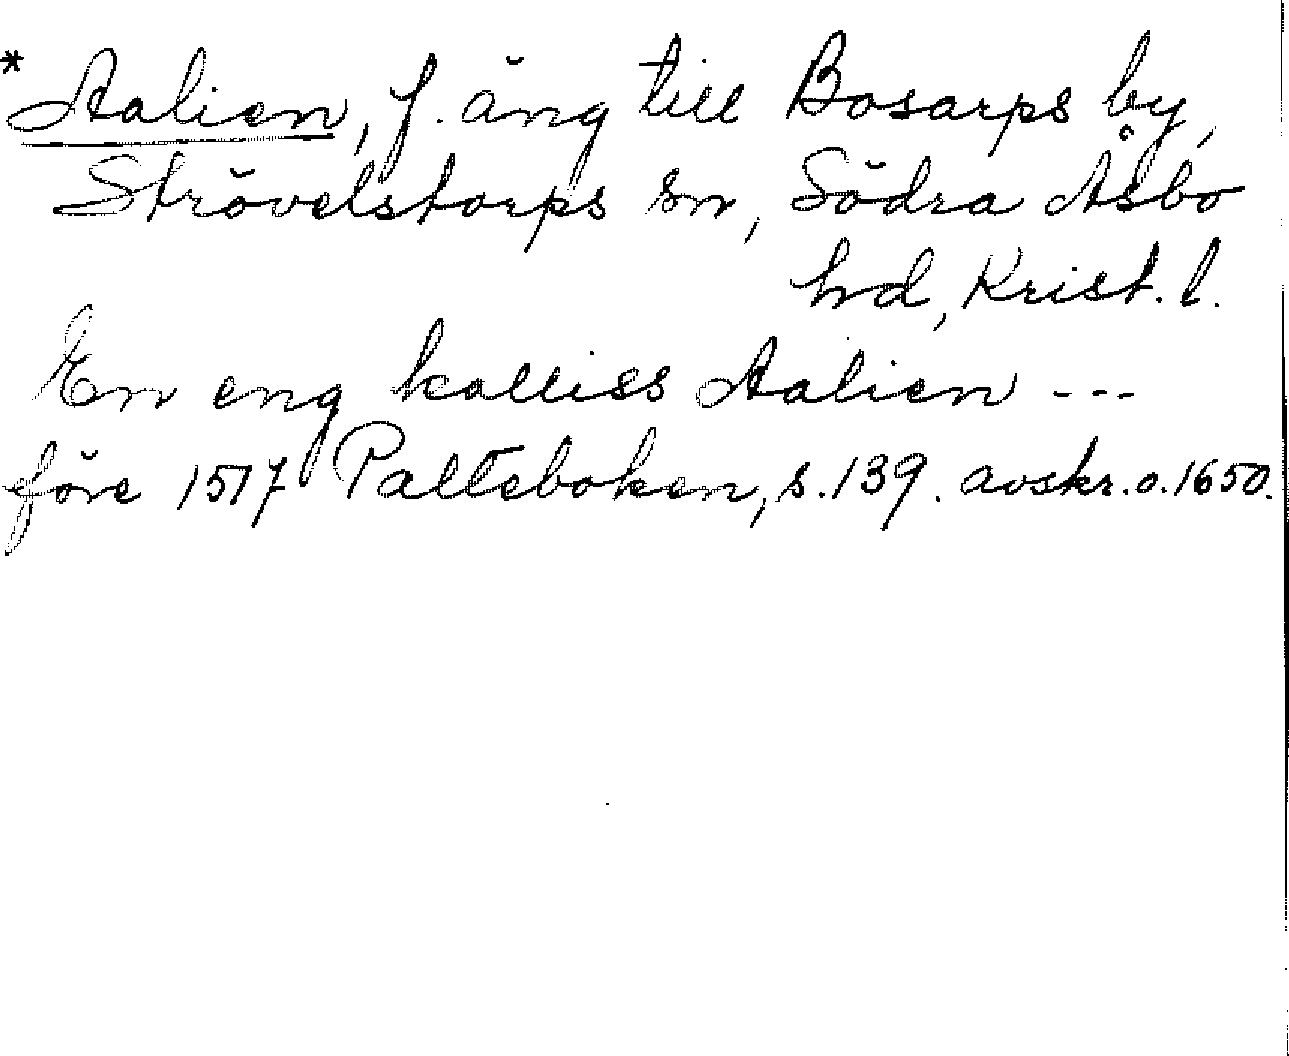 * Aalien, f. äng till Bosarps by,
Strövelstorps sn, Södra Åsbo
hd, Krist. l.
En eng kalliss Aalien ---
före 1517 Palteboken, s. 139. avskr. o. 1650.